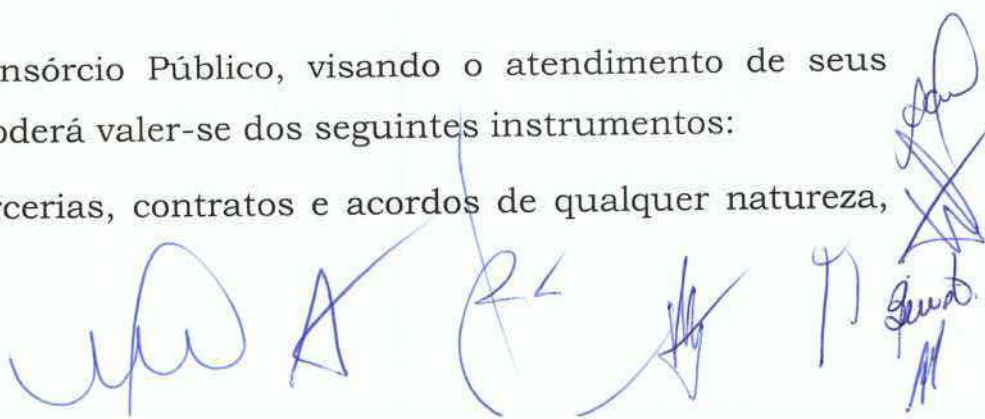 nsórcio Público, visando o atendimento de seus
oderá valer-se dos seguintes instrumentos:
rcerias, contratos e acordos de qualquer natureza,